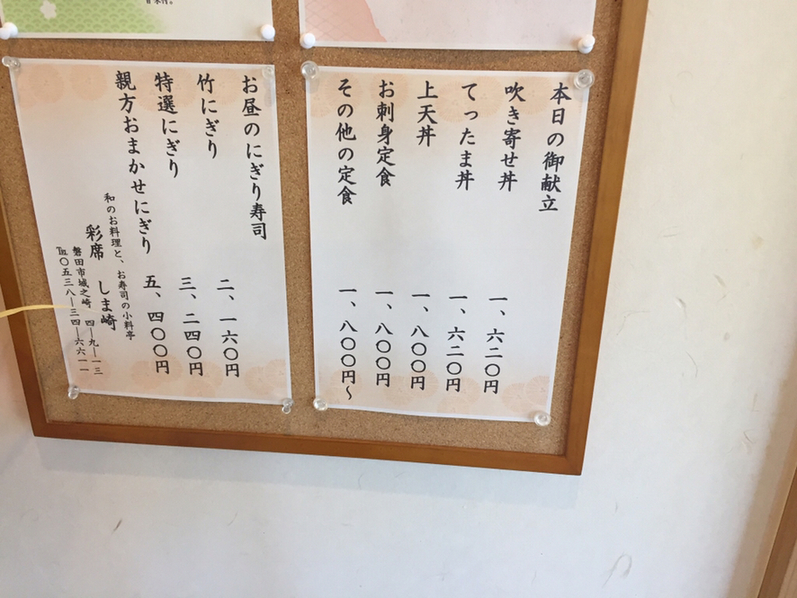 本日の御献立
吹き寄せ丼 一、六二〇円
てったま丼 一、六二〇円
上天丼 一、八〇〇円
お刺身定食 一、八〇〇円
その他の定食 一、八〇〇円〜
お昼のにぎり寿司
竹にぎり 二、一六〇円
特選にぎり 三、二四〇円
親方おまかせにぎり 五、四〇〇円
和のお料理と、お寿司の小料亭
彩席 しま崎
磐田市城之崎 四―九―一三
℡〇五三八―三四―六六一一